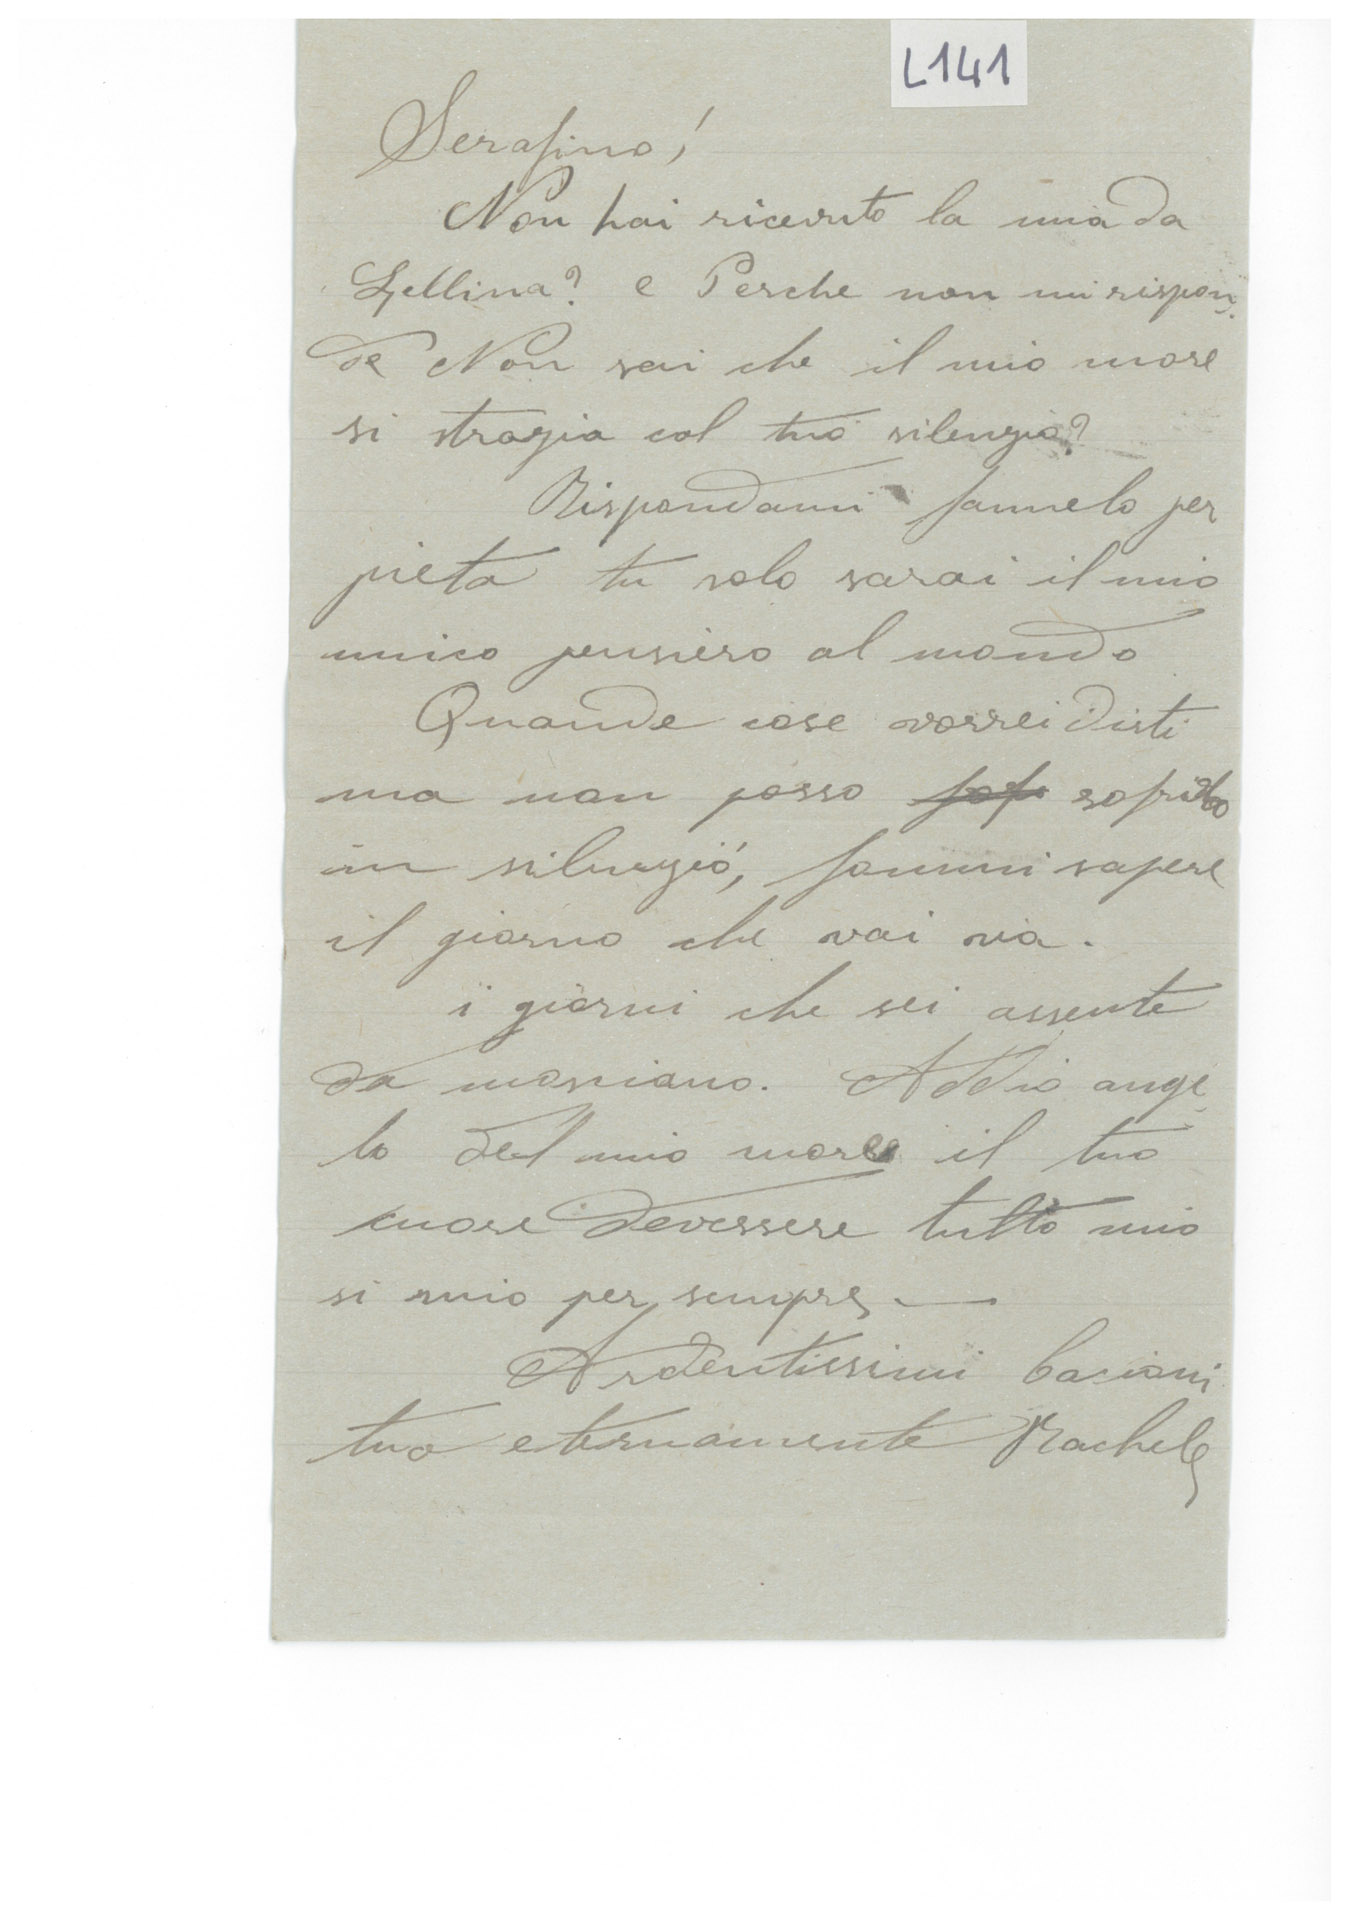 L141
Serafino!
Non hai ricevuto la mia da
Gellina? e Perche non mi rispon-
de Non sai che il mio cuore
si strazia col tuo silenzio?
Rispondami fammelo per
pieta tu solo sarai il mio
unico pensiero al mondo
Quande cose vorrei dirti
ma non posso sofribo
in silenzio, fammi sapere
il giorno che vai via.
i giorni che sei assente
da mosciano. Addio ange-
lo del mio cuore il tuo
cuore devessere tutto mio
si mio per sempre —
Ardentissimi bacioni
tua eternamente Rachele